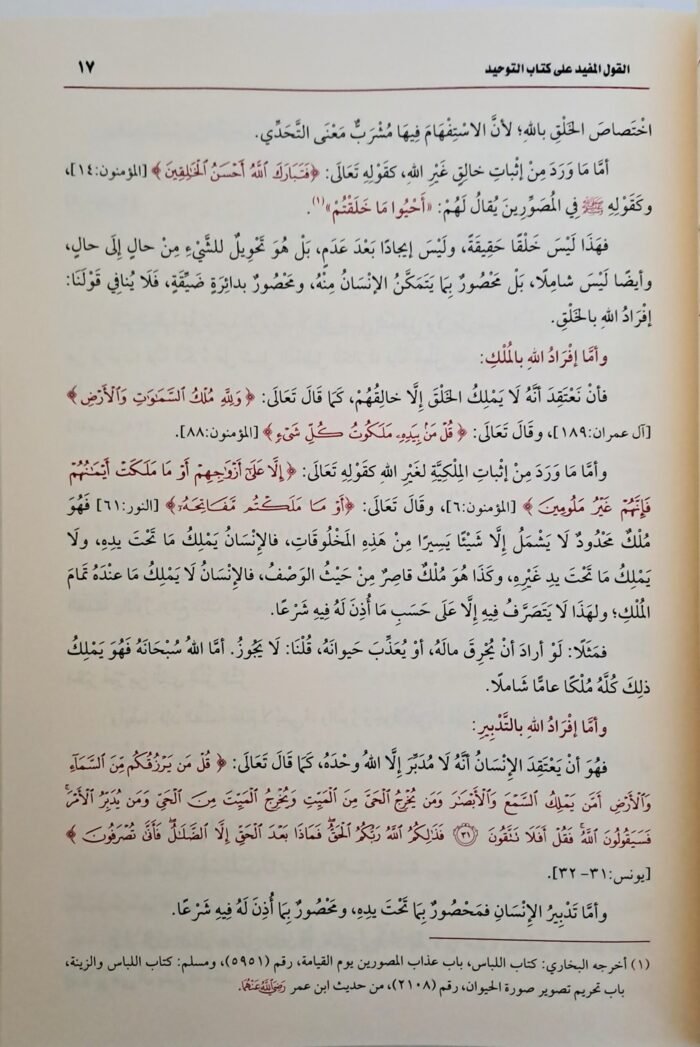 القول المفيد على كتاب التوحيد ١٧
اخْتَصَاصَ الخَلْقِ بِاللهِ؛ لأنَّ الاسْتِفْهَامَ فِيهَا مُشْرَبٌ مَعْنَى التَّحَدِّي.
أمَّا مَا وَرَدَ مِنْ إثْباتِ خالِقٍ غَيْرِ اللهِ، كقَوْلِهِ تَعَالَى: ﴿فَتَبَارَكَ ٱللَّهُ أَحْسَنُ ٱلْخَٰلِقِينَ﴾ [المؤمنون:١٤]،
وكقَوْلِهِ ﷺ فِي المُصَوِّرِينَ يُقالُ لَهُمْ: «أَحْيُوا مَا خَلَقْتُمْ»(١).
فهَذَا لَيْسَ خَلْقًا حَقِيقَةً، ولَيْسَ إيجادًا بَعْدَ عَدَمٍ، بَلْ هُوَ تَحْوِيلٌ للشَّيْءِ مِنْ حالٍ إِلَى حالٍ،
وأيضًا لَيْسَ شامِلًا، بَلْ مَحْصُورٌ بِمَا يَتَمَكَّنُ الإنْسَانُ مِنْهُ، ومَحْصُورٌ بدائِرَةٍ ضَيِّقَةٍ، فَلَا يُنافِي قَوْلَنَا:
إفْرَادُ اللهِ بالخَلْقِ.
وأمَّا إفْرَادُ اللهِ بالمُلْكِ:
فأنْ نَعْتَقِدَ أنَّهُ لَا يَمْلِكُ الخَلْقَ إلَّا خالِقُهُمْ، كَمَا قَالَ تَعَالَى: ﴿وَلِلَّهِ مُلْكُ ٱلسَّمَٰوَٰتِ وَٱلْأَرْضِ﴾
[آل عمران:١٨٩]، وقَالَ تَعَالَى: ﴿قُلْ مَنۢ بِيَدِهِۦ مَلَكُوتُ كُلِّ شَىْءٍ﴾ [المؤمنون:٨٨].
وأمَّا مَا وَرَدَ مِنْ إثْباتِ المِلْكِيَّةِ لغَيْرِ اللهِ كقَوْلِهِ تَعَالَى: ﴿إِلَّا عَلَىٰٓ أَزْوَٰجِهِمْ أَوْ مَا مَلَكَتْ أَيْمَٰنُهُمْ
فَإِنَّهُمْ غَيْرُ مَلُومِينَ﴾ [المؤمنون:٦]، وقَالَ تَعَالَى: ﴿أَوْ مَا مَلَكْتُم مَّفَاتِحَهُۥٓ﴾ [النور:٦١] فَهُوَ
مُلْكٌ مَحْدُودٌ لَا يَشْمَلُ إلَّا شَيْئًا يَسِيرًا مِنْ هَذِهِ المَخْلُوقَاتِ، فالإنْسَانُ يَمْلِكُ مَا تَحْتَ يدِهِ، ولَا
يَمْلِكُ مَا تَحْتَ يدِ غَيْرِهِ، وكَذَا هُوَ مُلْكٌ قاصِرٌ مِنْ حَيْثُ الوَصْفُ، فالإنْسَانُ لَا يَمْلِكُ مَا عنْدَهُ تَمَامَ
المُلْكِ؛ ولهَذَا لَا يَتَصَرَّفُ فِيهِ إلَّا عَلَى حَسَبِ مَا أُذِنَ لَهُ فِيهِ شَرْعًا.
فمَثَلًا: لَوْ أرادَ أنْ يُحْرِقَ مالَهُ، أوْ يُعَذِّبَ حَيوانَهُ، قُلْنَا: لَا يَجُوزُ. أمَّا اللهُ سُبْحَانَهُ فَهُوَ يَمْلِكُ
ذلِكَ كُلَّهُ مُلْكًا عامًّا شَامِلًا.
وأمَّا إفْرَادُ اللهِ بالتَّدْبِيرِ:
فهُوَ أنْ يَعْتَقِدَ الإنْسَانُ أنَّهُ لَا مُدَبِّرَ إلَّا اللهُ وحْدَهُ، كَمَا قَالَ تَعَالَى: ﴿قُلْ مَن يَرْزُقُكُم مِّنَ ٱلسَّمَآءِ
وَٱلْأَرْضِ أَمَّن يَمْلِكُ ٱلسَّمْعَ وَٱلْأَبْصَٰرَ وَمَن يُخْرِجُ ٱلْحَىَّ مِنَ ٱلْمَيِّتِ وَيُخْرِجُ ٱلْمَيِّتَ مِنَ ٱلْحَىِّ وَمَن يُدَبِّرُ ٱلْأَمْرَ ۚ
فَسَيَقُولُونَ ٱللَّهُ ۚ فَقُلْ أَفَلَا تَتَّقُونَ ۝٣١ فَذَٰلِكُمُ ٱللَّهُ رَبُّكُمُ ٱلْحَقُّ ۖ فَمَاذَا بَعْدَ ٱلْحَقِّ إِلَّا ٱلضَّلَٰلُ ۖ فَأَنَّىٰ تُصْرَفُونَ﴾
[يونس:٣١-٣٢].
وأمَّا تَدْبِيرُ الإنْسَانِ فمَحْصُورٌ بِمَا تَحْتَ يدِهِ، ومَحْصُورٌ بِمَا أُذِنَ لَهُ فِيهِ شَرْعًا.
(١) أخرجه البخاري: كتاب اللباس، باب عذاب المصورين يوم القيامة، رقم (٥٩٥١)، ومسلم: كتاب اللباس والزينة،
باب تحريم تصوير صورة الحيوان، رقم (٢١٠٨)، من حديث ابن عمر رَضِيَ اللَّهُ عَنْهُمَا.